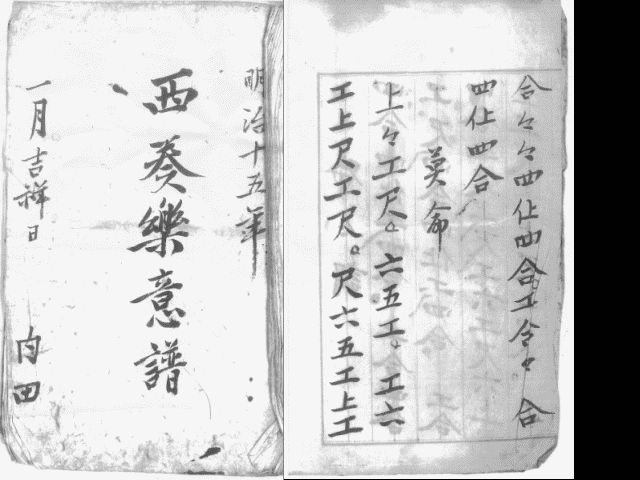 明治十五年
西奏樂意譜
一月吉祥日
内田
合々々四仩四合工合々合
四仩四合
上々工尺。六五工。工六
工上尺工尺。尺六五工上工